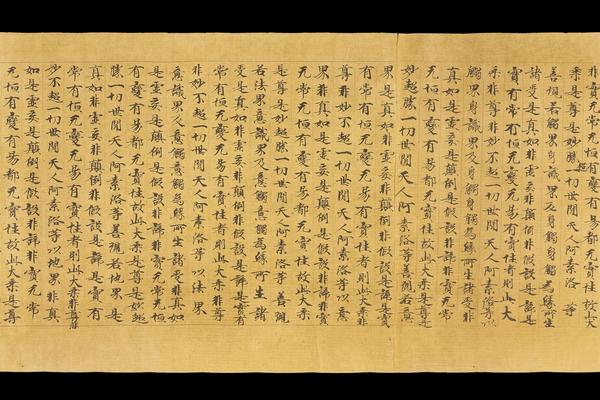 非實无常无恒有變有易都无實性故此大
乘是尊是妙超勝一切世間天人阿素洛等
善現若觸界身識界及身觸身觸為緣所生
諸受是真如非虛妄非顛倒非假設是諦是
實有常有恒无變无易有實性者則此大
乘非尊非妙不超一切世間天人阿素洛等以
觸界身識界及身觸身觸為緣所生諸受非
真如是虛妄是顛倒是假設非諦非實无常
无恒有變有易都无實性故此大乘是尊是
妙超勝一切世間天人阿素洛等善現若意
界是真如非虛妄非顛倒非假設是諦是實
有常有恒无變无易有實性者則此大乘非
尊非妙不超一切世間天人阿素洛等以意
界非真如是虛妄是顛倒是假設非諦非實
无常无恒有變有易都无實性故此大乘
是尊是妙超勝一切世間天人阿素洛等善現
若法界意識界及意觸意觸為緣所生諸
受是真如非虛妄非顛倒非假設是諦是實有
常有恒无變无易有實性者則此大乘非尊
非妙不超一切世間天人阿素洛等以法界
意識界及意觸意觸為緣所生諸受非真如
是虛妄是顛倒是假設非諦非實无常无恒
有變有易都无實性故此大乘是尊是妙超
勝一切世間天人阿素洛等善現若地界是
真如非虛妄非顛倒非假設是諦是實有
常有恒无變无易有實性者則此大乘非尊非
妙不超一切世間天人阿素洛等以地界非真
如是虛妄是顛倒是假設非諦非實无常
无恒有變有易都无實性故此大乘是尊